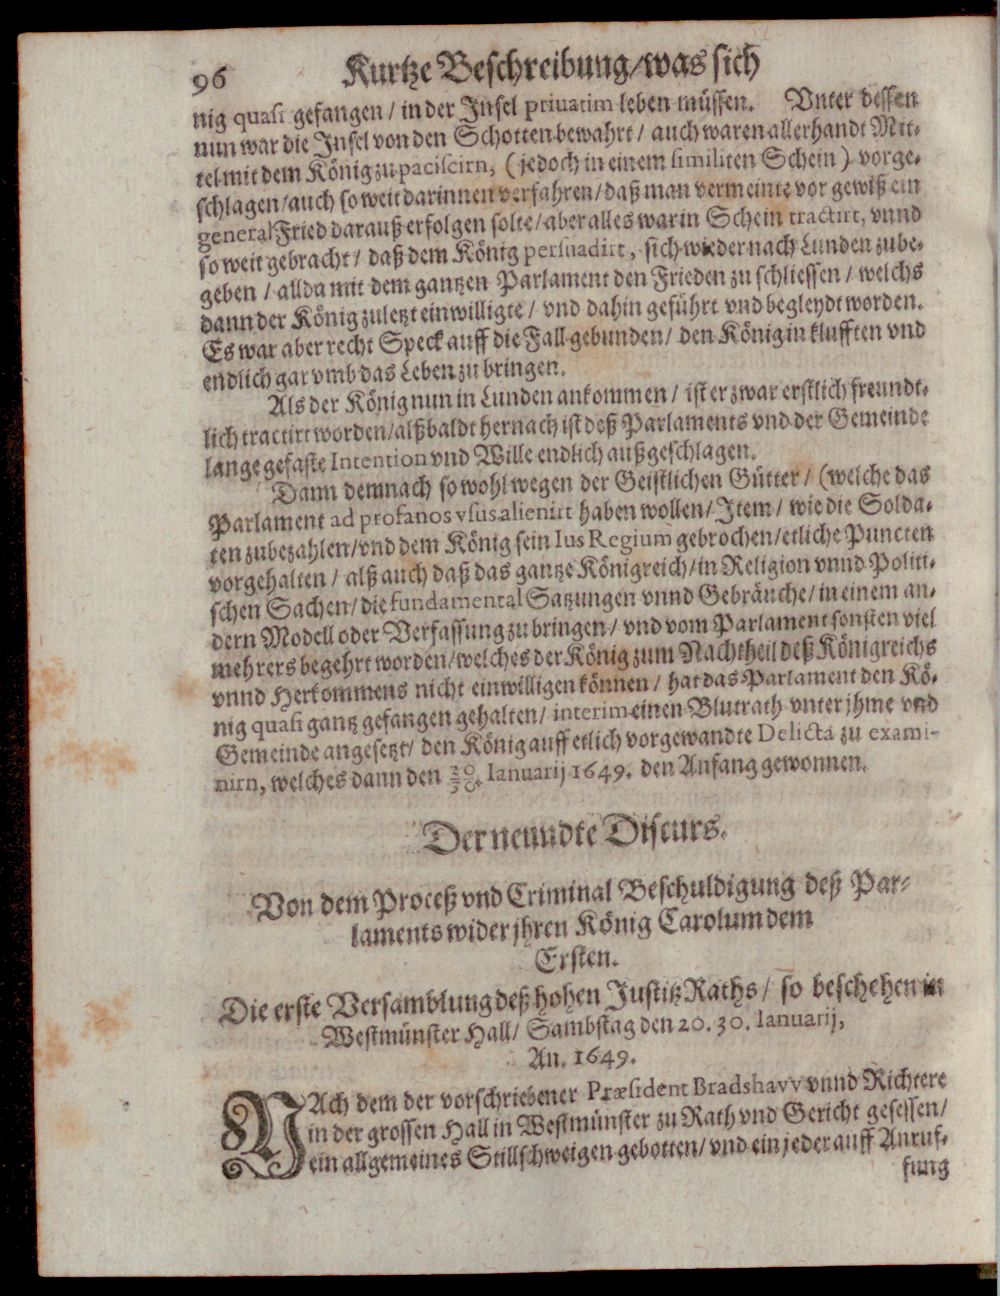 96 Kurtze Beschreibung/was sich
nig quasi gefangen / in der Insel privatim leben müssen. Vnter dessen
nun war die Insel von den Schotten bewahrt / auch waren allerhandt Mit-
tel mit dem König zu paciscirn, (jedoch in einem similiten Schein) vorge-
schlagen/auch so weit darinnen verfahren/daß man vermeinte vor gewiß ein
general Fried darauß erfolgen solte/aber alles war in Schein tractirt, vnnd
so weit gebracht/ daß dem König persuadirt, sich wieder nach Lunden zube-
geben / allda mit dem gantzen Parlament den Frieden zu schliessen / welchs
dann der König zuletzt einwilligte / vnd dahin geführt vnd begleydt worden.
Es war aber recht Speck auff die Fall gebunden/ den König in klufften vnd
endlich gar vmb das Leben zu bringen.
Als der König nun in Lunden ankommen / ist er zwar erstlich freundt-
lich tractirt worden/alßbaldt hernach ist deß Parlaments vnd der Gemeinde
lange gefaste Intention vnd Wille endlich außgeschlagen.
Dann demnach so wohl wegen der Geistlichen Gütter / (welche das
Parlament ad profanos vsus alienirt haben wollen/ Item / wie die Solda-
ten zubezahlen/vnd dem König sein Ius Regium gebrochen/etliche Puncten
vorgehalten / alß auch daß das gantze Königreich/in Religion vnnd Politi-
schen Sachen/ die fundamental Satzungen vnnd Gebräuche/ in einem an-
dern Modell oder Verfassung zu bringen/ vnd vom Parlament sonsten viel
mehrers begehrt worden/welches der König zum Nachtheil deß Königreichs
vnnd Herkommens nicht einwilligen können / hat das Parlament den Kö-
nig quasi gantz gefangen gehalten/ interim einen Blutrath vnter jhme vnd
Gemeinde angesetzt/ den König auff etlich vorgewandte Delicta zu exami-
nirn, welches dann den 20/30. Ianuarij 1649. den Anfang gewonnen.
Der neundte Discurs.
Von dem Proceß vnd Criminal Beschuldigung deß Par-
laments wider jhren König Carolum dem
Ersten.
Die erste Versamblung deß hohen Justitz Raths / so beschehen in
Westmünster Hall/ Sambstag den 20. 30. Ianuarij,
An. 1649.
NAch dem der vorschriebener Præsident Bradshavv vnnd Richtere
in der grossen Hall in Westmünster zu Rath vnd Gericht gesessen/
ein allgemeines Stillschweigen gebotten/ vnd ein jeder auff Anruf-
fung